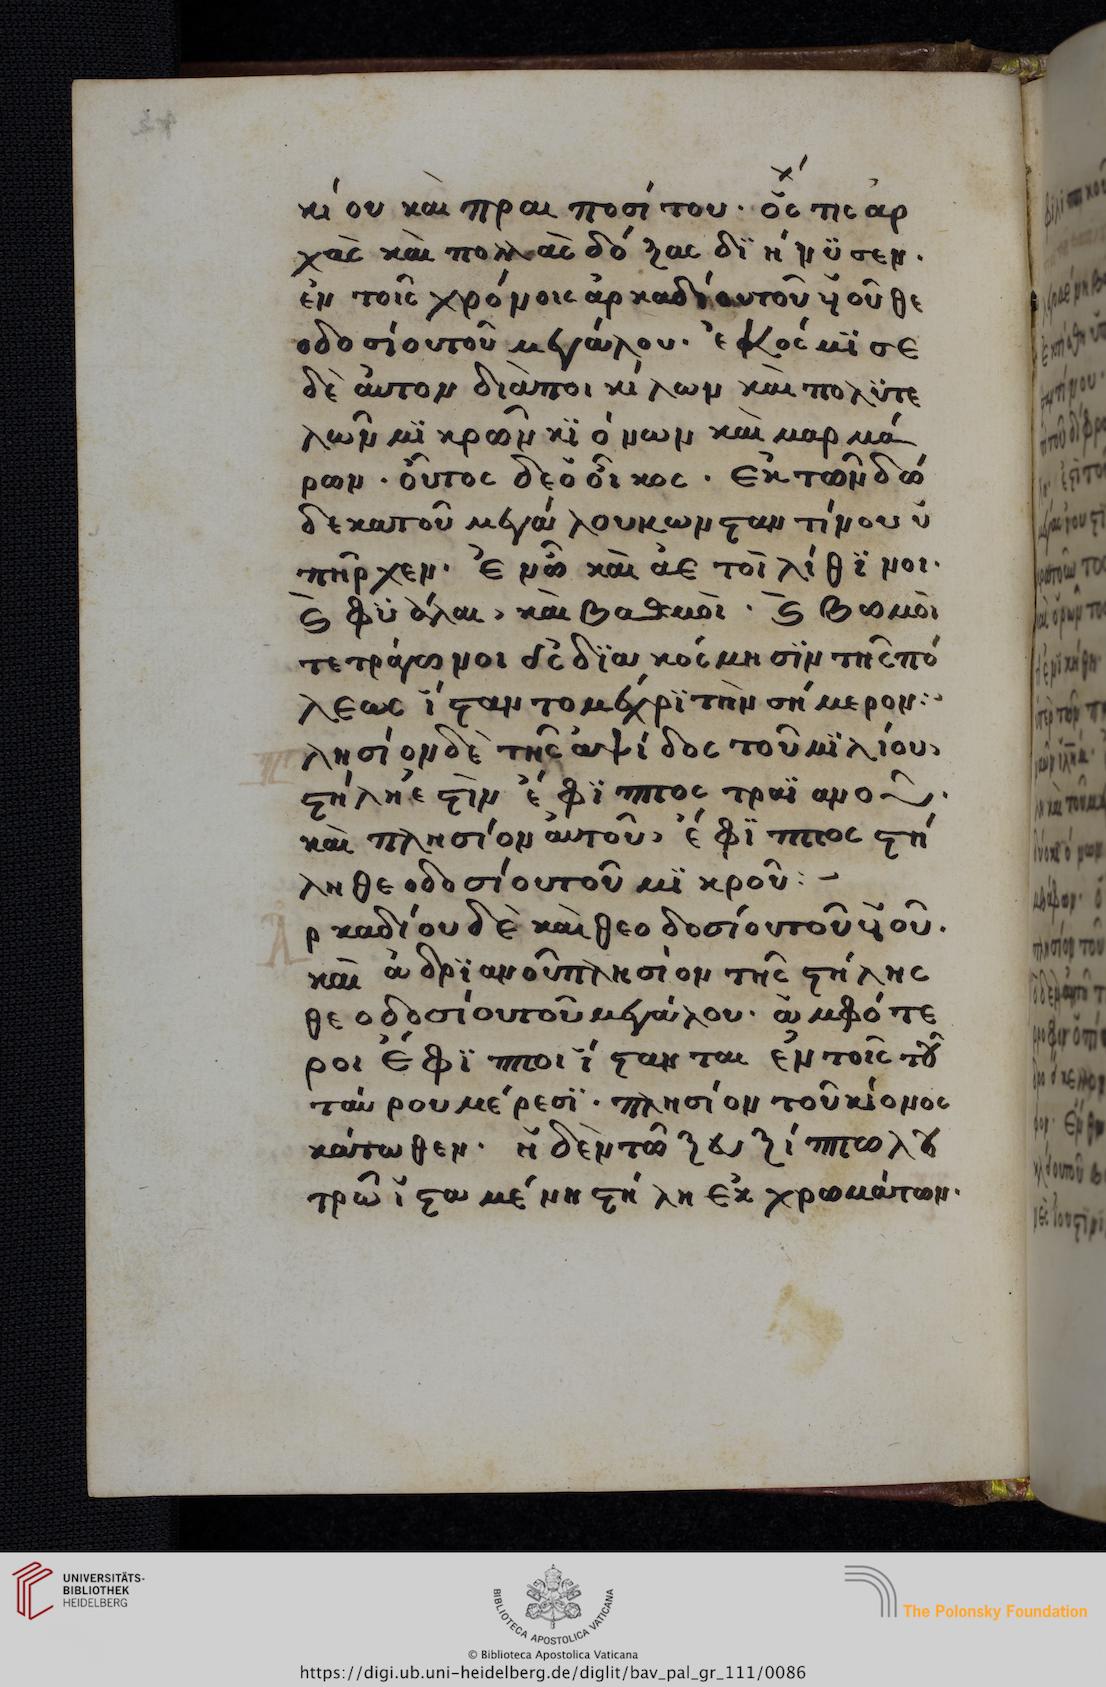 κίου καὶ πραιποσίτου· ὅς τις ἀρ
χὰς καὶ πολλὰς δόξας διήνϋσεν·
ἐν τοῖς χρόνοις ἀρκαδίου τοῦ ϋἱοῦ θε
οδοσίου τοῦ μεγάλου· ἐκόσμϊσε
δὲ ἀυτον διὰ ποικίλων καὶ πολϋτε
λῶν μϊκρῶν κϊόνων καὶ μαρμά
ρων· οὗτος δε ὁ οἶκος· ἐκ τῶν δώ
δεκα τοῦ μεγάλου κωνσταντίνου ὑ
πῆρχεν· ἐν ὧ καὶ ἀετοὶ λίθϊνοι·
ϛ φϋάλαι, καὶ βαθμοὶ· ϛ βωμοὶ
τετράγωνοι εἰς δϊακόσμησϊν τῆς πό
λεως ἵσταντο μέχρϊ τὴν σήμερον:·
λησίον δὲ τῆς ἁψίδος τοῦ μϊλίου,
στήλη ἐστὶν ἔφϊππος τραϊανοῦ·
καὶ πλησίον ἀυτοῦ, ἔφϊππος στή
λη θεοδοσίου τοῦ μϊκροῦ:–
Ἀρκαδίου δὲ καὶ θεοδοσίου τοῦ ϋἱοῦ·
καὶ ἀδρϊανοῦ πλησίον τῆς στήλης
θεοδοσίου τοῦ μεγάλου· ἀμφότε
ροι ἔφϊπποι ἵστανται ἐν τοῖς τοῦ
ταύρου μέρεσϊ· πλησίον τοῦ κίονος
κάτωθεν· ἡ δὲ ἐν τῶ ζευξίππω λου
τρῶ ἱσταμένη στήλη ἐκ χρωμάτων·
UNIVERSITÄTS-
BIBLIOTHEK
HEIDELBERG
BIBLIOTECA APOSTOLICA VATICANA
The Polonsky Foundation
© Biblioteca Apostolica Vaticana
https://digi.ub.uni-heidelberg.de/diglit/bav_pal_gr_111/0086